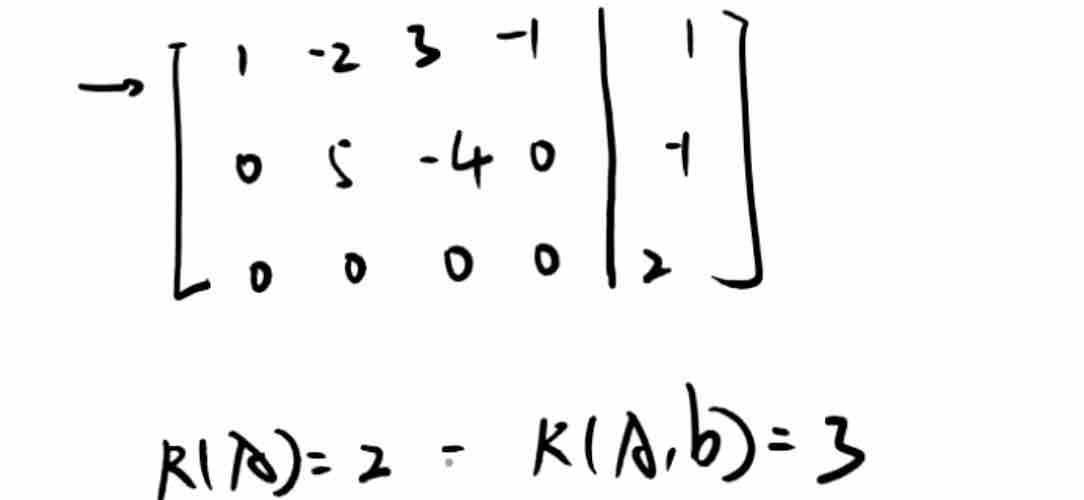 → [ 1 -2 3 -1 | 1 ]
0 5 -4 0 | -1
0 0 0 0 | 2
R(A)=2 - R(A,b)=3